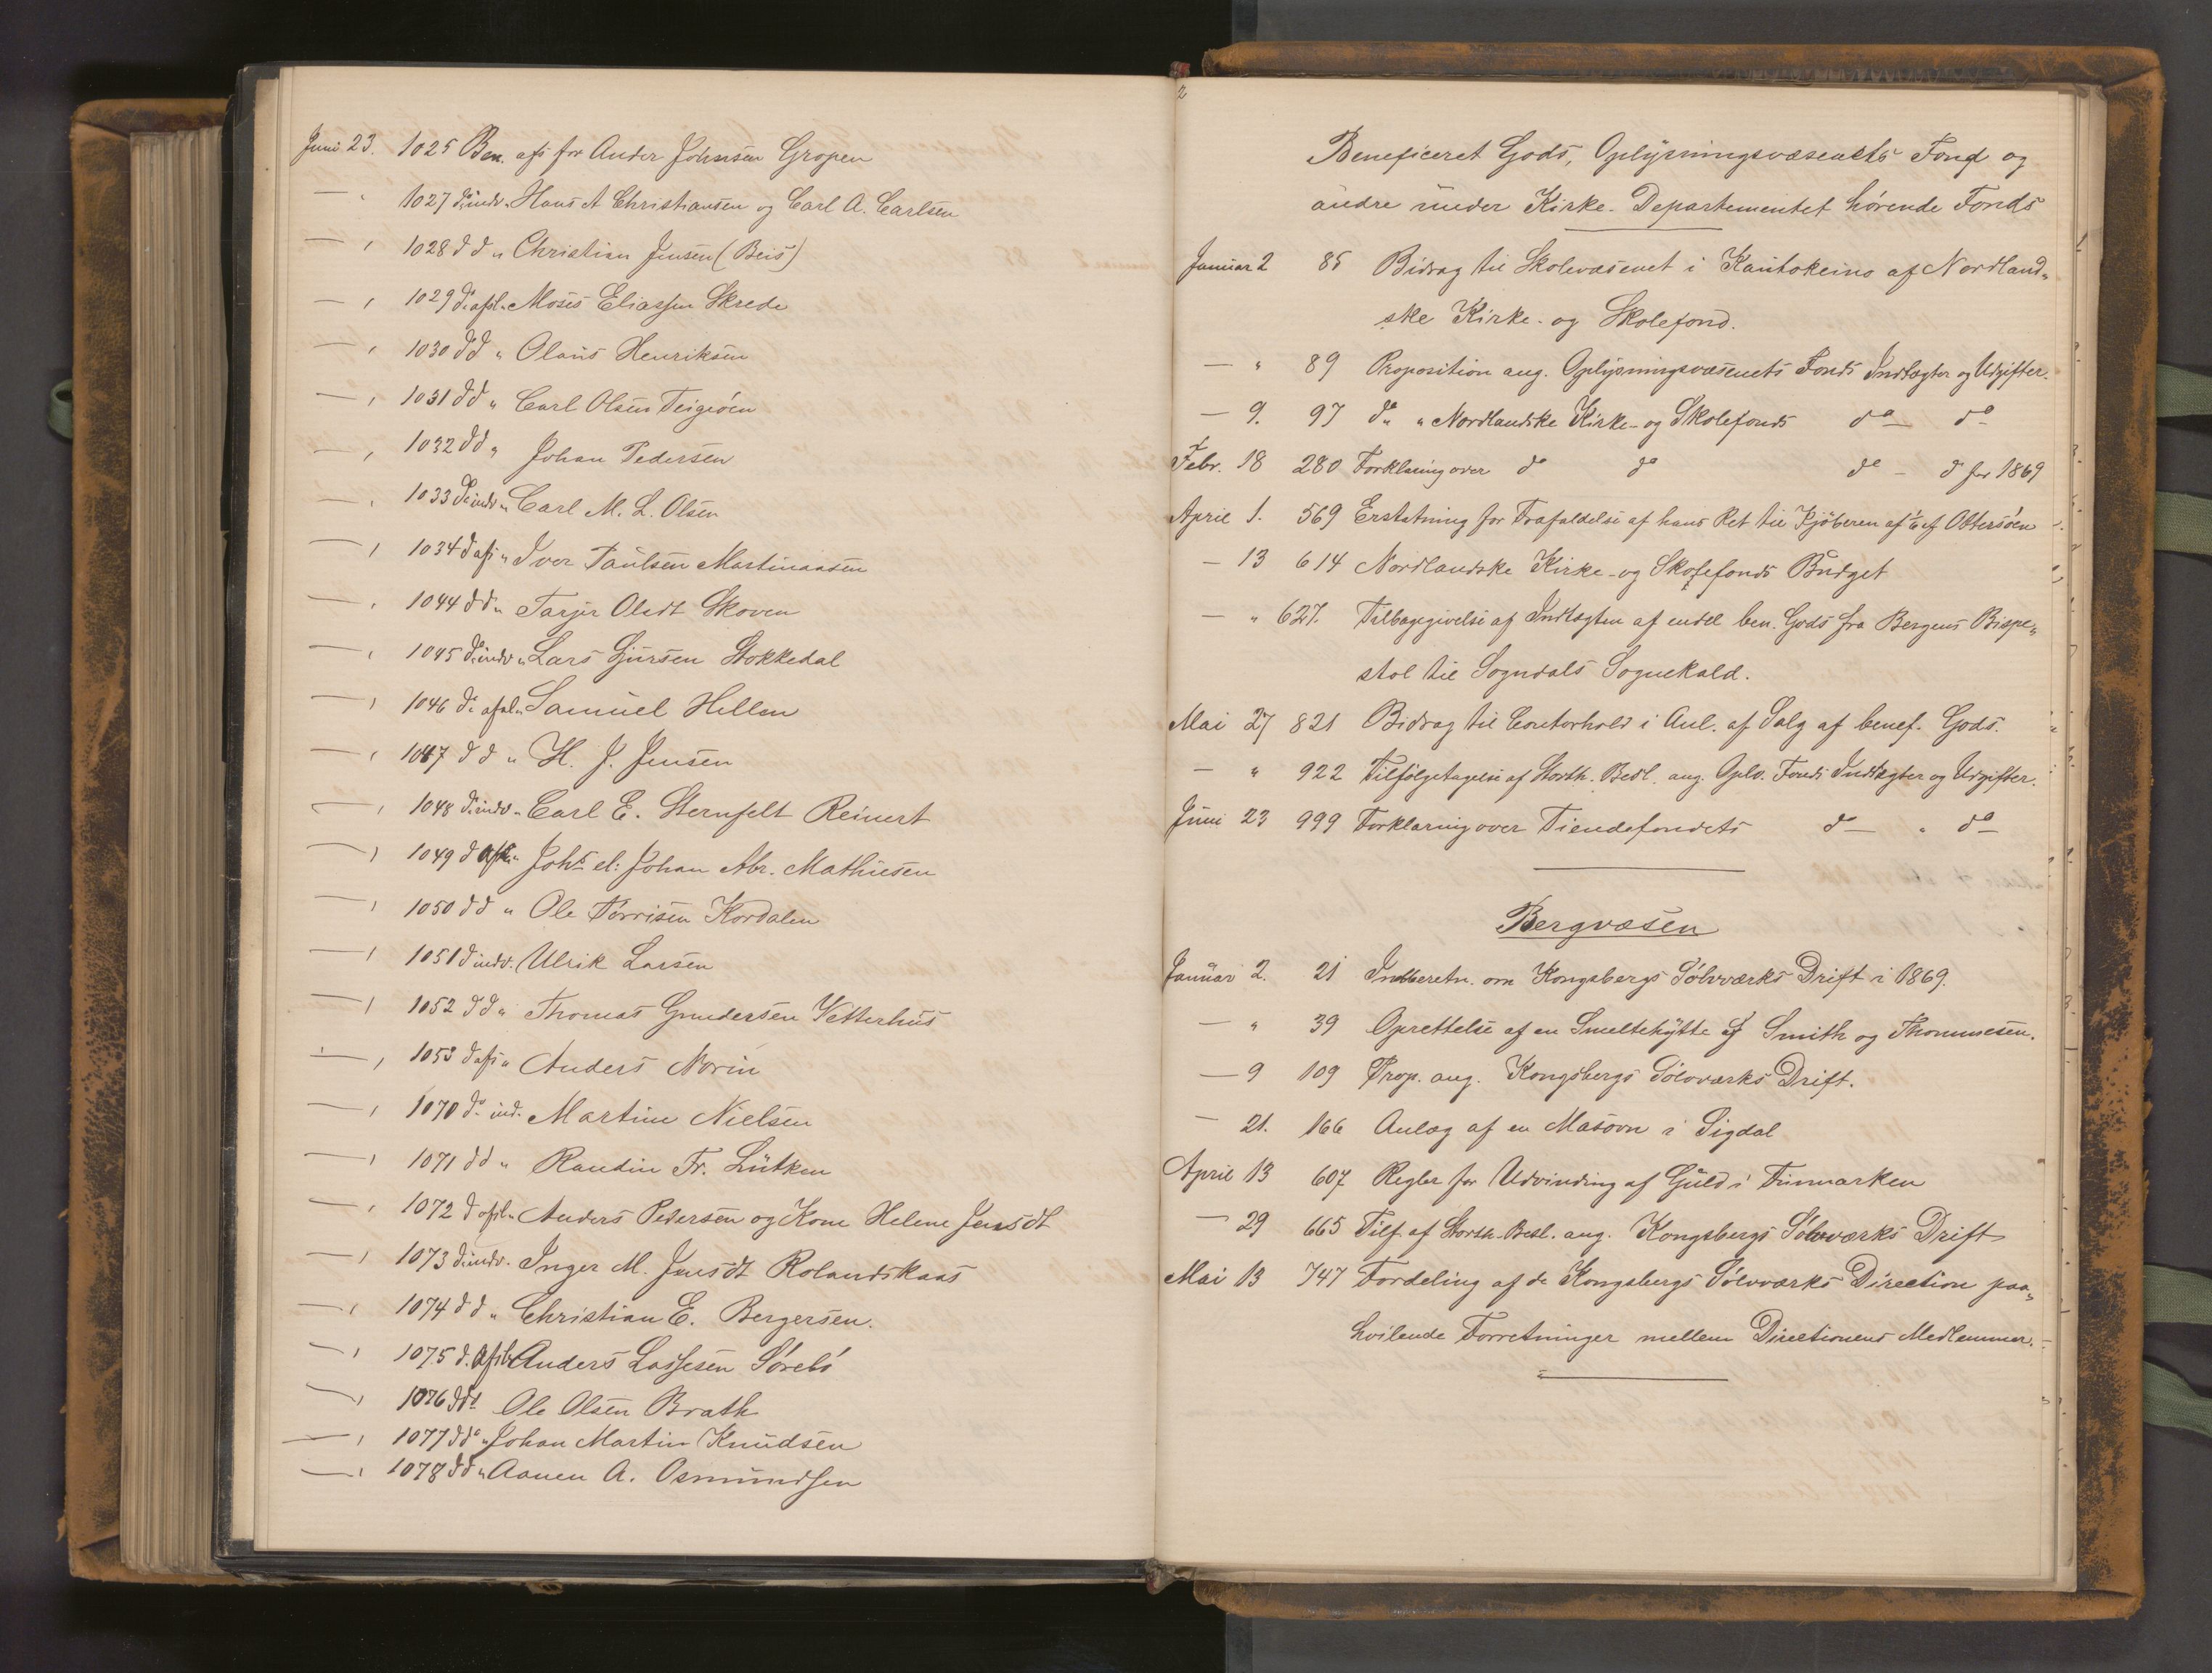 Juni 23. 1025 Ben. afs for Ander Johnsen Gropen
— " 1027 do indv. Hans A Christiansen og Carl A. Carlsen
— " 1028 d d " Christian Jensen (Beis)
— " 1029 do afsl. Moses Eliassen Skrede
— " 1030 d d " Olaus Henriksen
— " 1031 d d " Carl Olsen Teigröen
— " 1032 d d " Johan Pedersen
— " 1033 do indv " Carl M. L. Olsen
— " 1034 d afs " Iver Paulsen Martinaasen
— " 1044 d d " Tarjer Olsdt Skoven
— " 1045 do indv " Lars Gjursen Stokkedal
— " 1046 do afsl " Samuel Hellen
— " 1047 d d " H. J. Jensen
— " 1048 do indv " Carl E. Sternfelt Reinert
— " 1049 d afsl " Johs el: Johan Abr. Mathiesen
— " 1050 d d " Ole Törrisen Kordalen
— " 1051 d indv. Ulrik Larsen
— " 1052 d d " Thomas Gundersen Vetterhus
— " 1053 d afs " Anders Norin
— " 1070 do ind. Martine Nielsen
— " 1071 d d " Randin Fr. Lütken
— " 1072 d afsl " Anders Pedersen og Kone Helene Jensdt
— " 1073 d indv. Inger M. Jensdt Rolandskaas
— " 1074 d d " Christian E. Bergersen.
— " 1075 d. afsl Anders Lassesen Sörebö
— " 1076 d d " Ole Olsen Brath
— " 1077 d do " Johan Martin Knudsen
— " 1078 d d " Aanen A. Osmundsen
2
Beneficeret Gods, Oplysningsvæsenets Fond og
andre under Kirke-Departementet hørende Fonds
Januar 2 85 Bidrag til Skolevæsenet i Kautokeino af Nordland„
ske Kirke- og Skolefond.
— " 89 Proposition ang. Oplysningsvæsenets Fonds Indtægter og Udgifter.
— 9. 97 do " Nordlandske Kirke- og Skolefonds do — do
Febr. 18 280 Forklaring over do do do — do for 1869
April 1. 569 Erstatning for Frafaldelse af hans Ret til Kjöberen af 1/6 af Ottersöen
— 13 614 Nordlandske Kirke- og Skolefonds Budget
— " 627. Tilbagegivelse af Indtægten af endel ben. Gods fra Bergens Bispe„
stol til Sogndals Sognekald.
Mai 27 821 Bidrag til Contorhold i Anl. af Salg af benef. Gods.
— " 922 Tilfölgetagelse af Storth. Besl. ang. Oplv. Fonds Indtægter og Udgifter.
Juni 23 999 Forklaring over Tiendefondets do — " do
Bergvæsen
Januar 2. 21 Indberetn. om Kongsbergs Sölvværks Drift i 1869.
— " 39 Oprettelse af en Smeltehytte af Smith og Thommesen.
— 9 109 Prop. ang. Kongsbergs Sölvværks Drift.
— 21. 166 Anlæg af en Masovn i Sigdal
April 13 607 Regler for Udvinding af Guld i Finmarken
— 29 665 Tilf. af Storth. Besl. ang. Kongsbergs Sölvværks Drift
Mai 13 747 Fordeling af de Kongsbergs Sölvværks Direction paa„
hvilende Forretninger mellem Directionens Medlemmer.